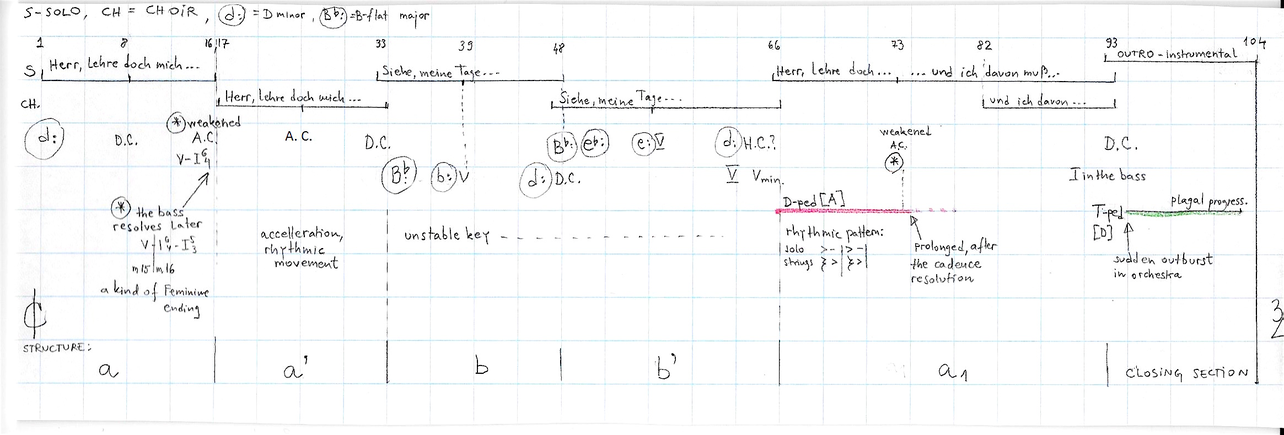 S-SOLO, CH = CHOIR, d: = D minor, Bb: = B-flat major
1 8 16 17 33 39 48 66 73 82 93 104
OUTRO - Instrumental
S Herr, Lehre doch mich... Siehe, meine Tage... Herr, Lehre doch... ... und ich davon muß...
CH. Herr, Lehre doch mich... Siehe, meine Tage... und ich davon...
* weakened
weakened
d: D.C. A.C. A.C. D.C. Bb: eb: e: V d: H.C.? A.C. D.C.
V-I 6 4
*
Bb: b: V d: D.C. V Vmin. I in the bass
* the bass
resolves Later
V | I 6 4 - I 5 3
m15 | m16
a kind of Feminine
Ending
acelleration,
rhythmic
movement
unstable key
D-ped [A]
rhythmic pattern:
solo > - | > - |
strings
Prolonged, after
the cadence
resolution
T-ped
[D]
plagal progress.
sudden outburst
in orchestra
¢
3
2
STRUCTURE:
a a' b b' a1 CLOSING SECTION